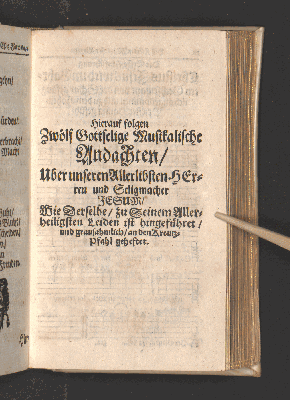 Hierauf folgen
Zwölf Gottselige Musikalische
Andachten/
Uber unseren Allerlibsten HEr-
ren und Seligmacher
JESUM/
Wie Derselbe/ zu Seinem Aller-
heiligsten Leiden ist hingeführet/
und grausahmlich/ an den Kreutz-
Pfahl geheftet.